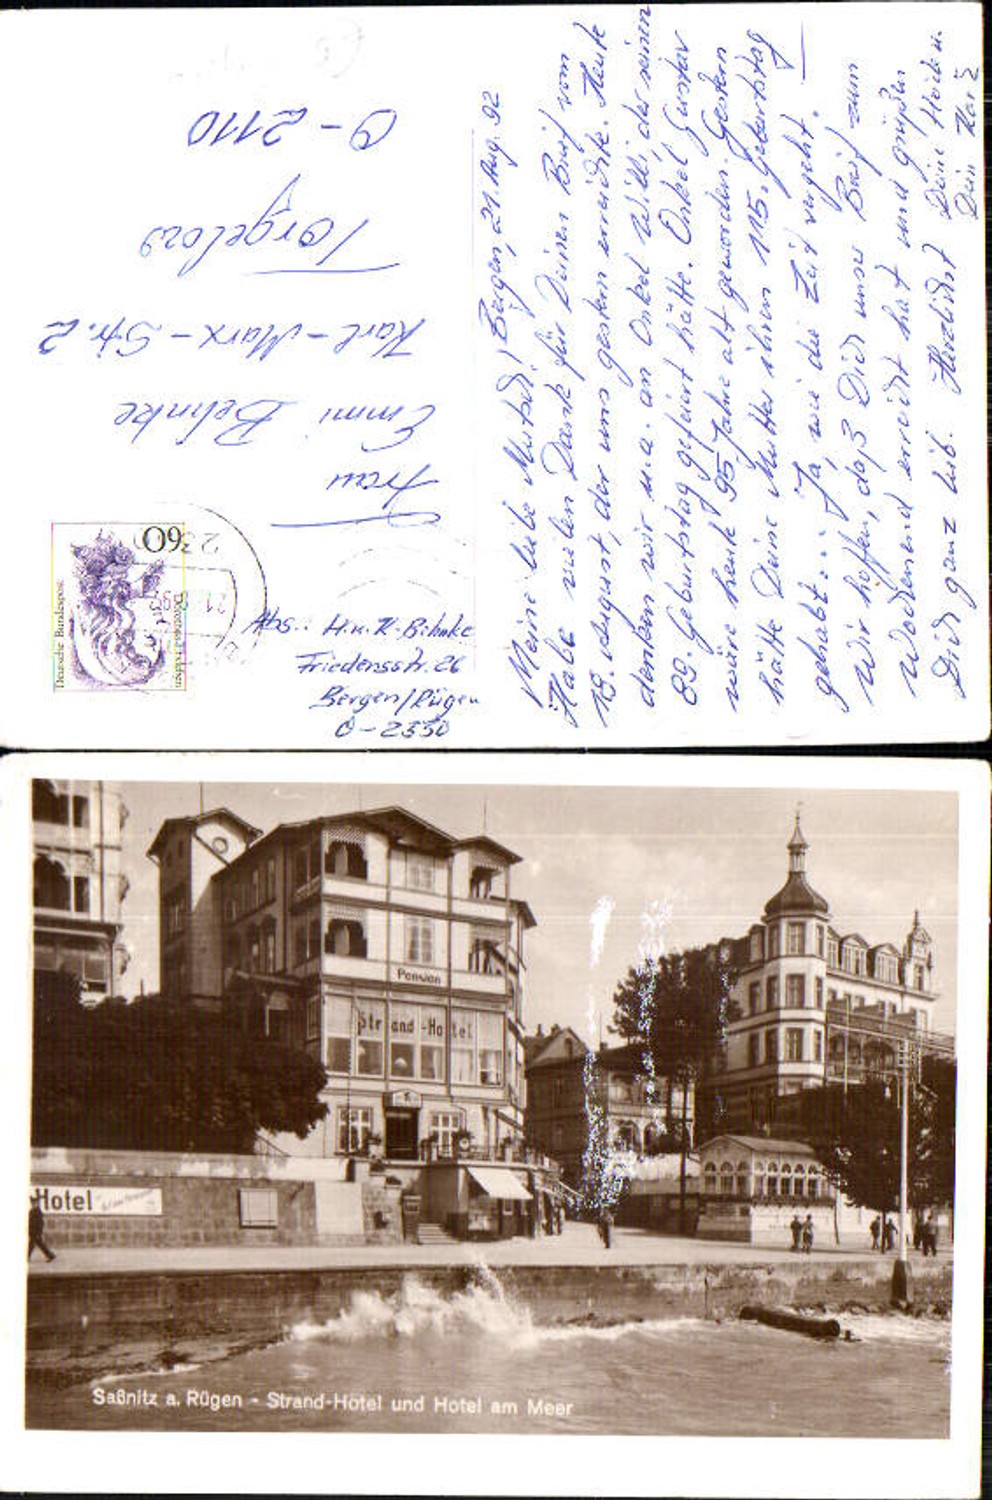 Bergen, 21. Aug. 92
Meine liebe Mutsch!
Habe vielen Dank für Deinen Brief vom
18. August, der uns gestern erreichte. Heute
denken wir u.a. an Onkel Willi, der seinen
89. Geburtstag gefeiert hätte. Onkel Gustav
wäre heute 95 Jahre alt geworden. Gestern
hätte Deine Mutter ihren 115. Geburtstag
gehabt... Ja, wie die Zeit vergeht.
Wir hoffen, daß Dich unser Brief zum
Wochenend erreicht hat und grüßen
Dich ganz lieb. Herzlichst Deine Heidi u.
Dein
Frau
Emmi Behnke
Karl-Marx-Str. 2
Torgelow
O-2110
Abs.: H.u.K. Behnke
Friedensstr. 26
Bergen/Rügen
O-2330
Deutsche Bundespost
60
Pension
Strand-Hotel
Hotel
Saßnitz a. Rügen - Strand-Hotel und Hotel am Meer